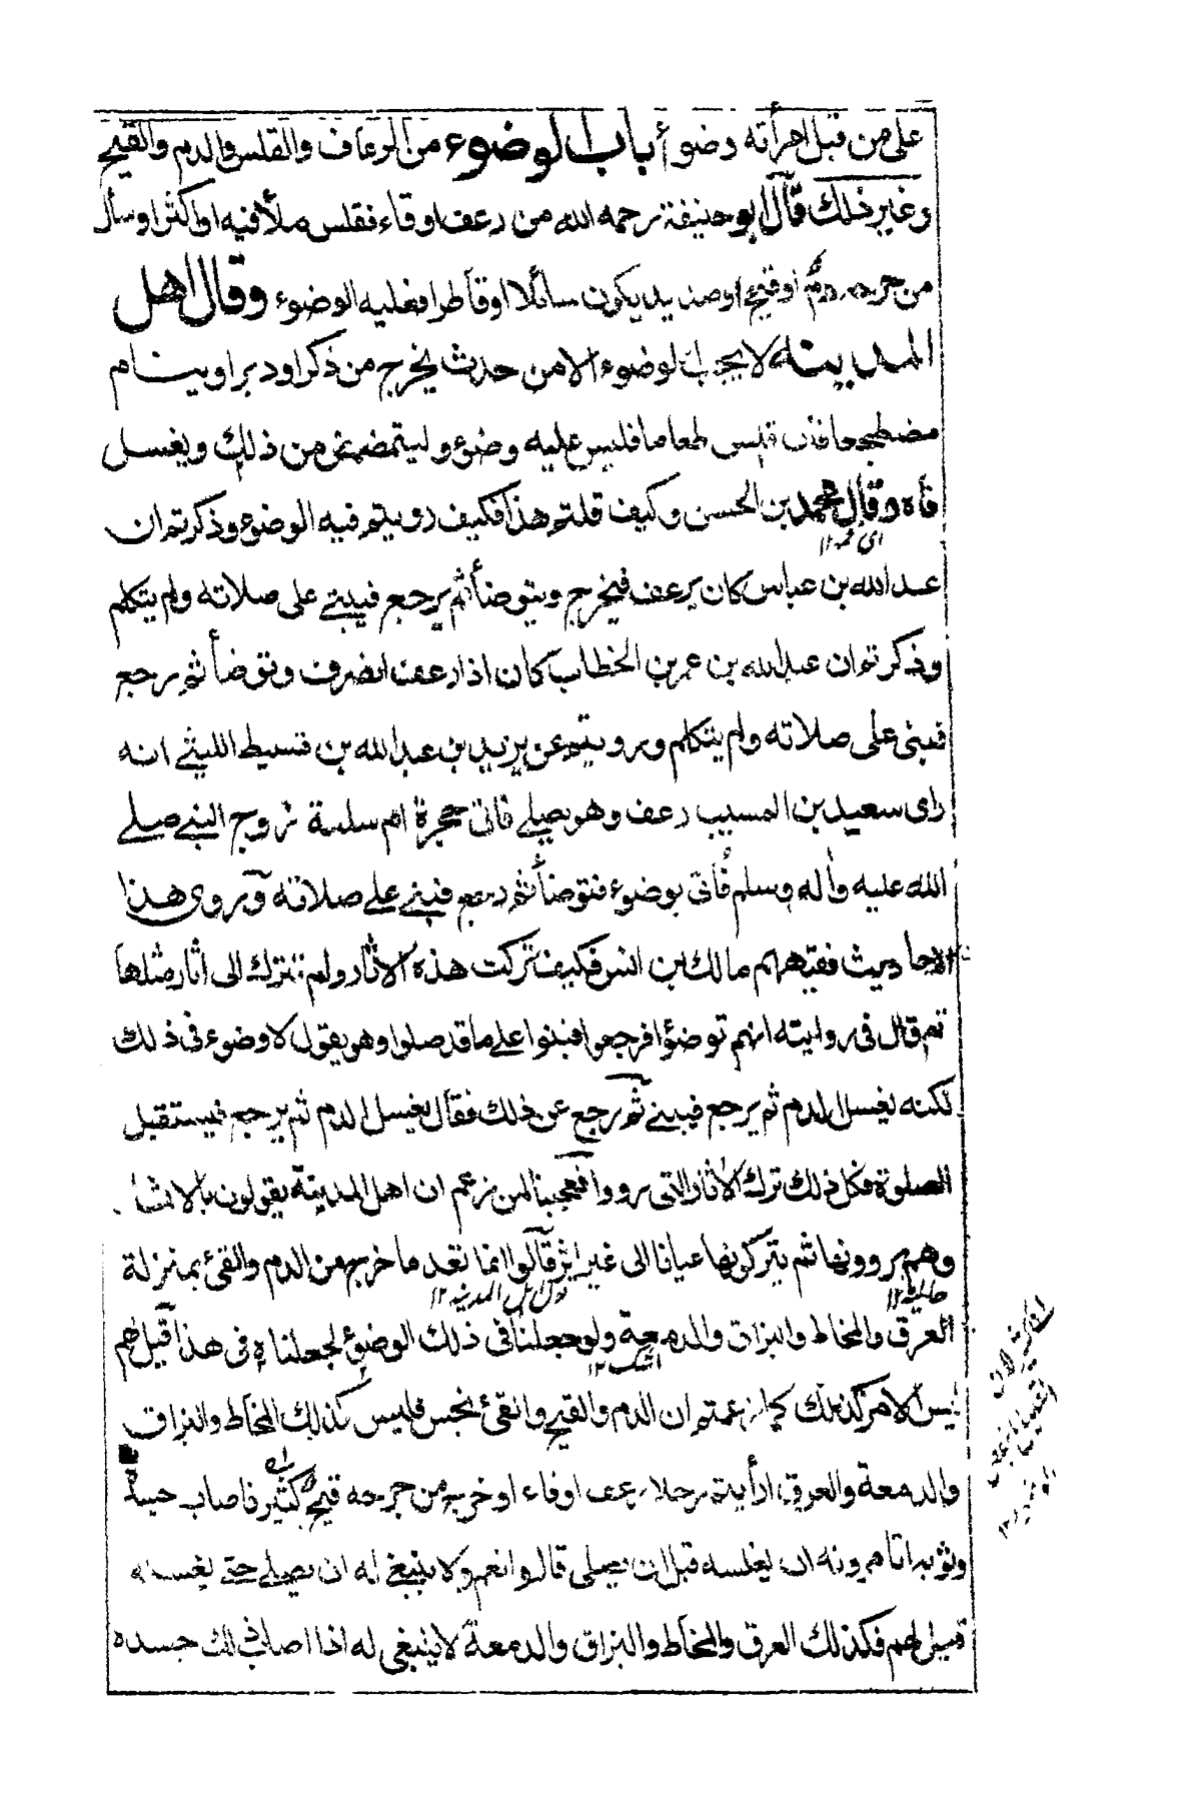 على من قبل امرأته وضوأ باب الوضوء من الرعاف والقلس والدم والقيح
وغير ذلك قال ابو حنيفة رحمه الله من رعف او قاء فقلس ملأ فيه او اكثر او سأل
من جرحه دم او قيح او صديد يكون سائلا او قاطرا فعليه الوضوء وقال اهل
المدينة لا يجب الوضوء الا من حدث يخرج من ذكر او دبر او ينام
مضطجعا فان قلس طعاما فليس عليه وضوء وليتمضمض من ذلك ويغسل
فاه وقال محمد بن الحسن وكيف قلتم هذا فكيف رويتم فيه الوضوء وذكرتم ان
اى محمد ١٢
عبد الله بن عباس كان يرعف فيخرج ويتوضأ ثم يرجع فيبنے على صلاته ولم يتكلم
وذكرتم ان عبد الله بن عمر بن الخطاب كان اذا رعف انصرف وتوضأ ثم رجع
فبنى على صلاته ولم يتكلم ورويتم عن يزيد بن عبد الله بن قسيط الليثے انه
راى سعيد بن المسيب رعف وهو يصلے فاتى حجرة ام سلمة زوج النبے صلے
الله عليه واله وسلم فأتى بوضوء فتوضأ ثم رجع فبنے علے صلاته وروى هذا
الاحاديث فقيههم مالك بن انس فكيف تركت هذه الاثار ولم تترك الى اثار مثلها
ثم قال فى روايته انهم توضؤا فرجعوا فبنوا علے ما قد صلوا وهو يقول لا وضوء فى ذلك
لكنه يغسل الدم ثم يرجع فيبنے ثم رجع عن ذلك فقال يغسل الدم ثم يرجع فيستقبل
الصلوة فكل ذلك ترك الاثار التى رووا فعجبنا لمن زعم ان اهل المدينة يقولون بالاثار
وهم يروونها ثم يتركونها عيانا الى غير اثر قالوا انما نعد ما خرج من الدم والقئ بمنزلة
حالية ١٢
المدينة ١٢
العرق والمخاط والبزاق والدمعة ولو جعلنا فى ذلك الوضوء لجعلناه فى هذا قيل لهم
اشك ١٢
ليس الامر كذلك كما زعمتم ان الدم والقيح والقئ نجس فليس كذلك المخاط والبزاق
والدمعة والعرق ارأيتم رجلا رعف او قاء او خرج من جرحه قيح كثير فاصاب جسده
وثوبه اتامرونه ان يغسله قبل ان يصلى قالوا نعم ولا ينبغے له ان يصلے حتے يغسله
قيل لهم فكذلك العرق والمخاط والبزاق والدمعة لا ينبغى له اذا اصاب ذلك جسده